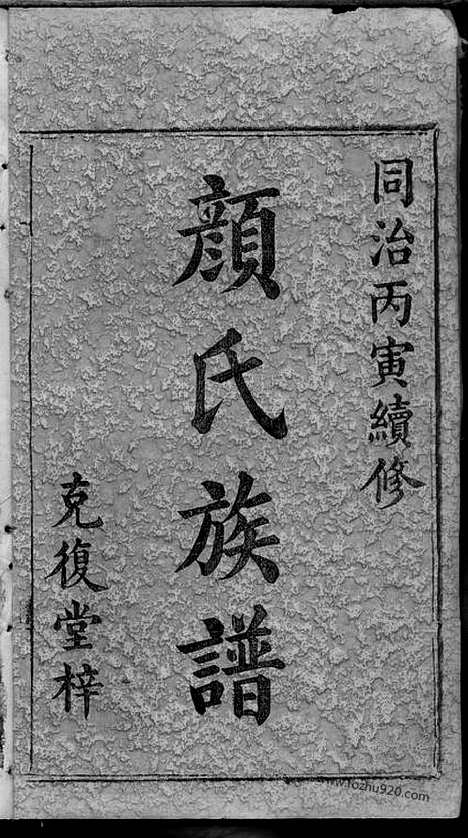 同治丙寅續修
顏氏族譜
克復堂梓
www.fozhu920.com